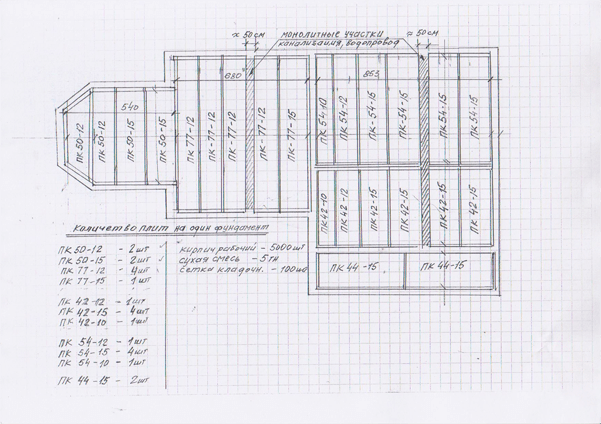 ≈ 50 см
монолитные участки
канализация, водопровод
≈ 50 см
680
853
540
ПК 50-12
ПК 50-12
ПК 50-15
ПК 50-15
ПК 77-12
ПК-77-12
ПК-77-12
ПК-77-12
ПК-77-15
ПК 54-10
ПК 54-12
ПК-54-15
ПК-54-15
ПК 54-15
ПК 54-15
ПК 42-10
ПК 42-12
ПК 42-15
ПК 42-15
ПК 42-15
ПК 42-15
ПК 44-15
ПК 44-15
Количетво плит на один фундамент
ПК 50-12 - 2 шт
ПК 50-15 - 2 шт
ПК 77-12 - 4 шт
ПК 77-15 - 1 шт
ПК 42-12 - 1 шт
ПК 42-15 - 4 шт
ПК 42-10 - 1 шт
ПК 54-12 - 1 шт
ПК 54-15 - 4 шт
ПК 54-10 - 1 шт
ПК 44-15 - 2 шт
кирпич рабочий - 5000 шт
сухая смесь - 5 тн
Сетка кладочн. - 100